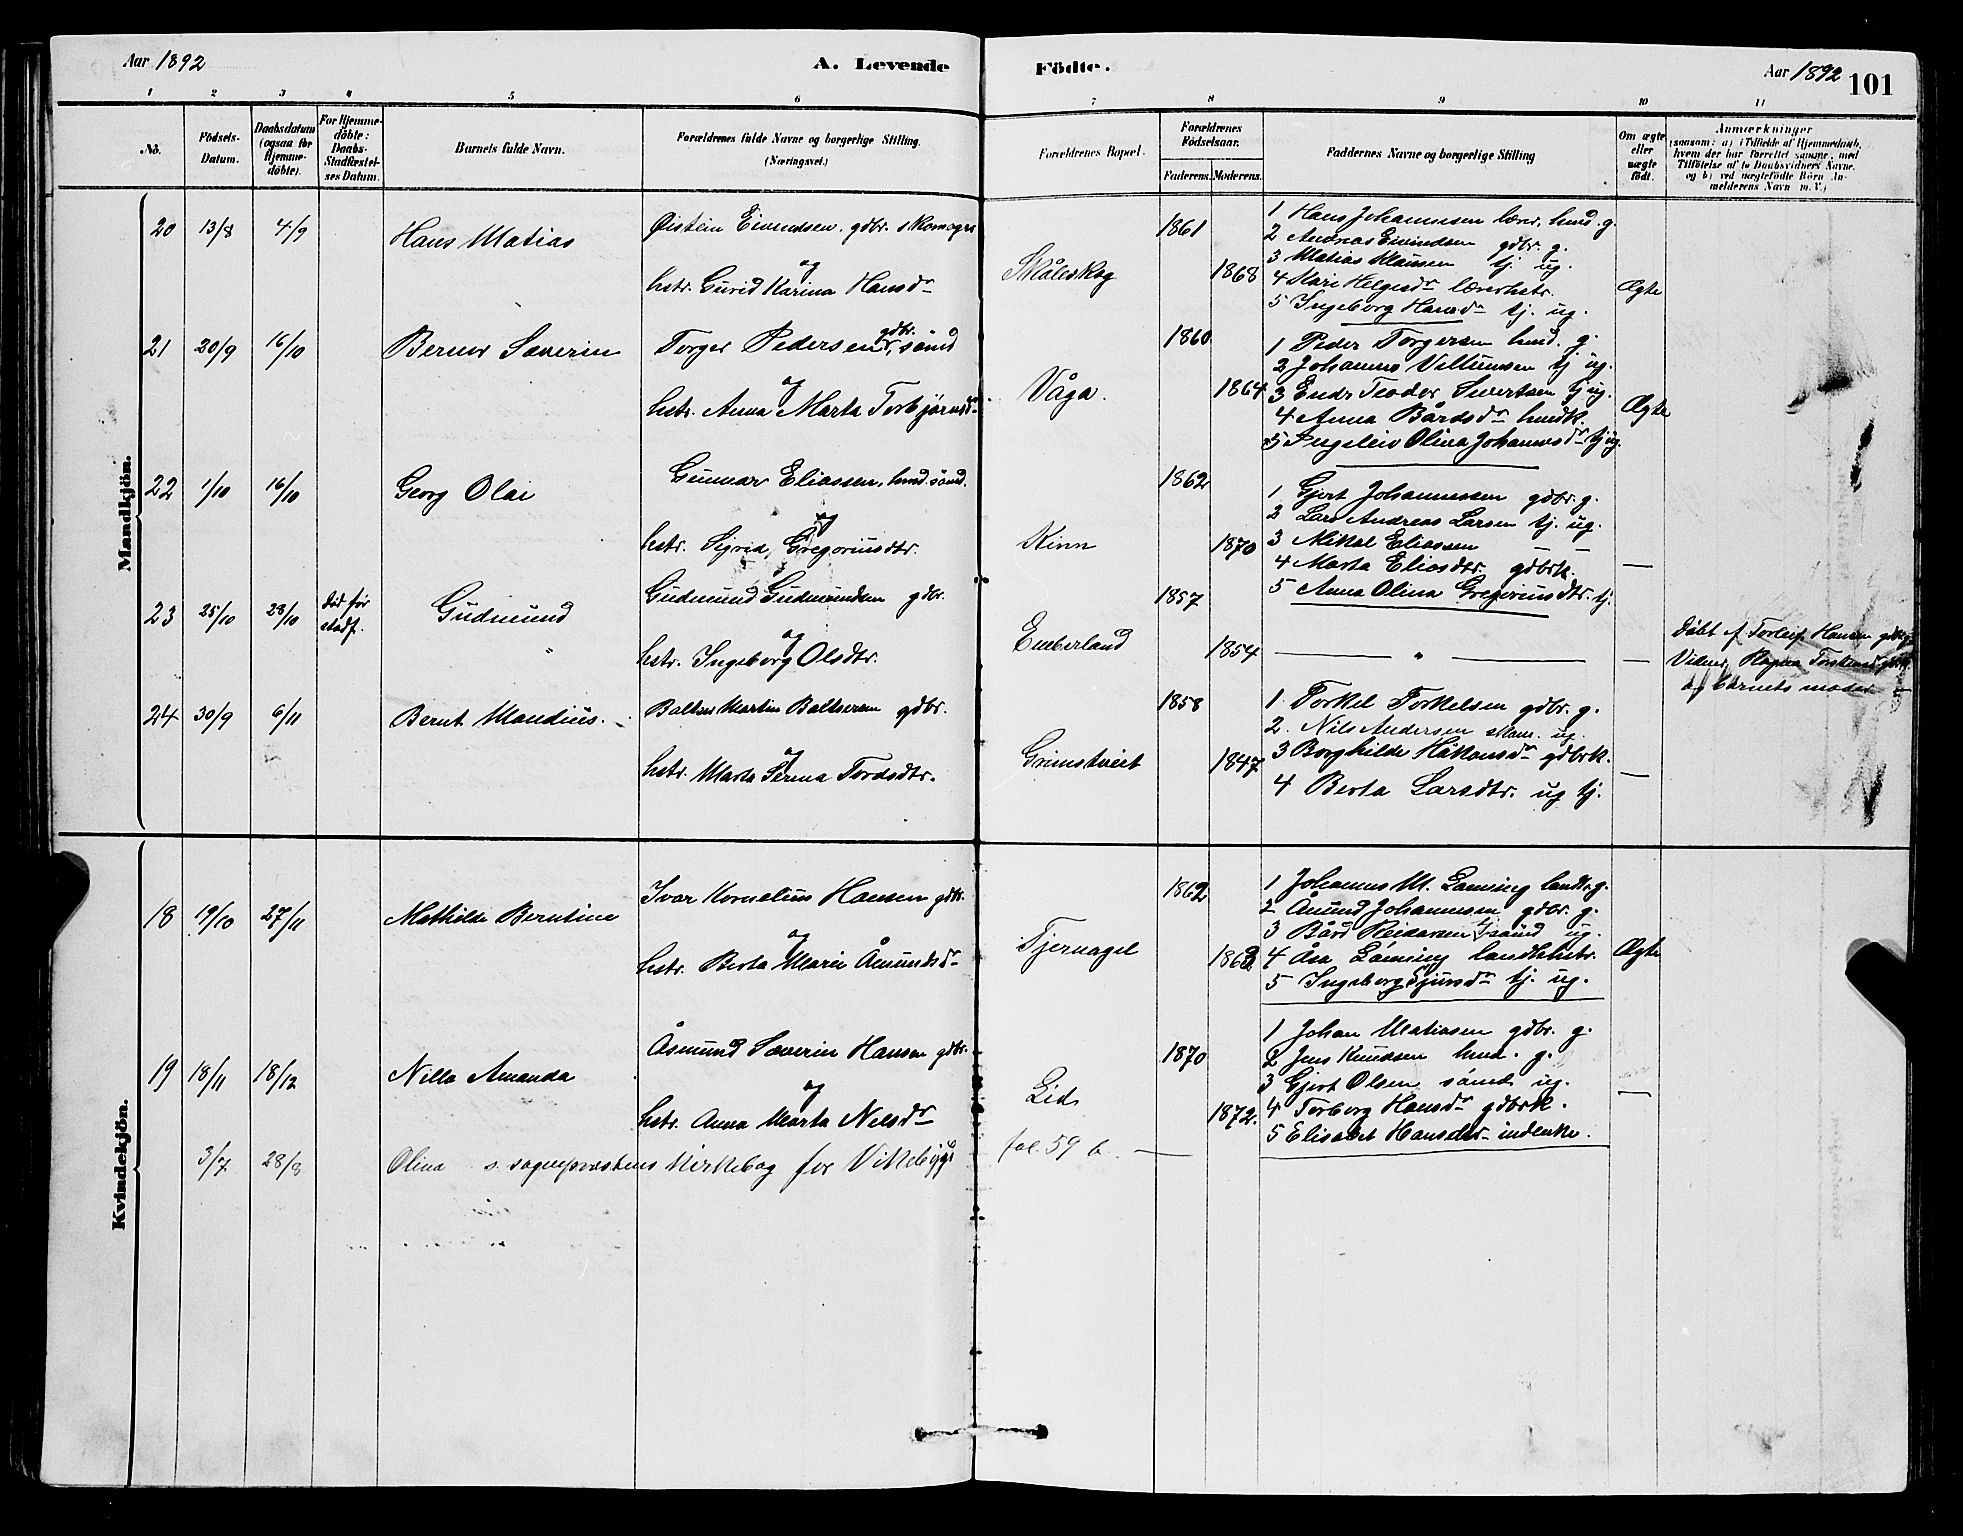 Aar 1892 A. Levende Födte. Aar 1892 101
1 2 3 4 5 6 7 8 9 10 11
No. Födsels-Datum. Daabsdatum (ogsaa for Hjemmedöbte). For Hjemmedöbte: Daabs-Stadfæstelses Datum. Barnets fulde Navn. Forældrenes fulde Navne og borgerlige Stilling. (Næringsvei.) Forældrenes Bopæl. Forældrenes Födselsaar. Faderens. Moderens. Faddernes Navne og borgerlige Stilling Om ægte eller uægte födt. Anmærkninger
(saasom: a) i Tilfælde af Hjemmedaab, hvem der har forrettet samme, med Tilföielse af to Daabsvidners Navne, og b) ved uægtefödte Börn Anmelderens Navn m. V.)
Mandkjön.
20 13/8 4/9 Hans Matias Øistein Eivindsen, gdbr. skomager 1861 1 Hans Johannesen lærer, husd. g.
2 Andreas Eivindsen gdbr. g.
og 3 Matias Klausen tj. ug.
hstr. Gurid Karina Hansdr Skåleskog 1868 4 Kari Helgesdr lærerhstr. Ægte
5 Ingeborg Hansdr tj. ug.
21 20/9 16/10 Berner Severin Torger Pedersen gdbr., sømd 1860 1 Peder Torgersen husd. g.
2 Johannes Villumsen tj ug.
og Våga. 1864 3 Endr Teodor Sivertsen tj ug.
hstr. Anna Marta Torbjørnsdr 4 Anna Bårdsdr husdk. Ægte
5 Ingeleiv Olina Johannesdr tj ug.
22 1/10 16/10 Georg Olai Gunnar Eliassen, husd. sømd. 1862 1 Gjert Johannessen gdbr. g.
2 Lars Andreas Larsen tj. ug.
og 3 Mikal Eliassen — —
hstr. Sigrid Gregoriusdtr. Kinn 1870 4 Marta Eliasdtr. gdbrk. —
5 Anna Olina Gregoriusdtr. tj.
23 25/10 28/10 død før stadf. Gudmund Gudmund Gudmundsen gdbr. 1857
og
hstr. Ingeborg Olsdtr. Emberland 1854 — " — — døbt af Torleif Hansen gdbr.
Vidner,
og barnets moder
24 30/9 6/11 Bernt Mandius. Balser Martin Baltsersen gdbr. 1858 1. Torkel Torkelsen gdbr. g.
2. Nils Andersen ug.
og 3 Borghilde Håkonsdr gdbrk.
hstr. Marta Serina Tordsdtr. Grimstveit 1847 —
4 Berta Larsdtr. ug tj.
Kvindekjön.
18 19/10 27/11 Mathilde Berntine Ivar Kornelius Hansen gdbr. 1862 1 Johannes M. Lønning landh. g.
2 Åmund Johannesen gdbr. g.
og Tjernagel 3 Bård Reidarsen tj sømd ug.
hstr. Berta Marie Åmundsdr 1863 4 Åsa Lønning landhhstr. Ægte
5 Ingeborg Sjursdr tj. ug.
19 18/11 18/12 Nilla Amanda Åsmund Severin Hansen gdbr. 1870 1 Johan Matiasen gdbr. g.
2 Jens Knudsen husd. g.
og Lid 3 Gjert Olsen sømd ug. —
hstr. Anna Marta Nelsdr 1872. 4 Torborg Hansdr gdbrk.
5 Elisabet Hansdtr indenke.
3/7 28/8 Olina s. sogneprestens kirkebog for Vikebygd fol. 59 b. —